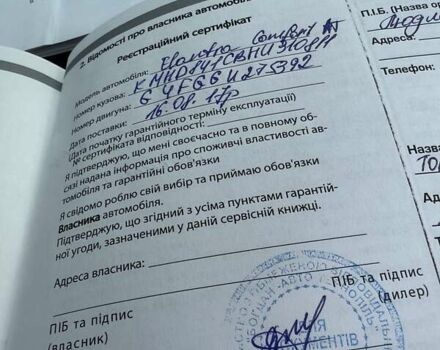 2. Відомості про власника автомобіля
Реєстраційний сертифікат
Модель автомобіля: Elantra Comfort AT
Номер кузова: KMHD841CBHU310811
Номер двигуна: G4FGGU275392
Дата поставки: 16.08.17р
(Дата початку гарантійного терміну експлуатації)
№ сертифіката відповідності:
Я підтверджую, що мені своєчасно та в повному об-
сязі надана інформація про споживчі властивості ав-
томобіля та гарантійні обов'язки
Я свідомо роблю свій вибір та приймаю обов'язки
Власника автомобіля.
Підтверджую, що згідний з усіма пунктами гарантій-
ної угоди, зазначеними у даній сервісній книжці.
Адреса власника:
ПІБ та підпис
(власник)
ПІБ та підпис
(дилер)
П.І.Б. (Назва о
Адреса:
Телефон:
Назва